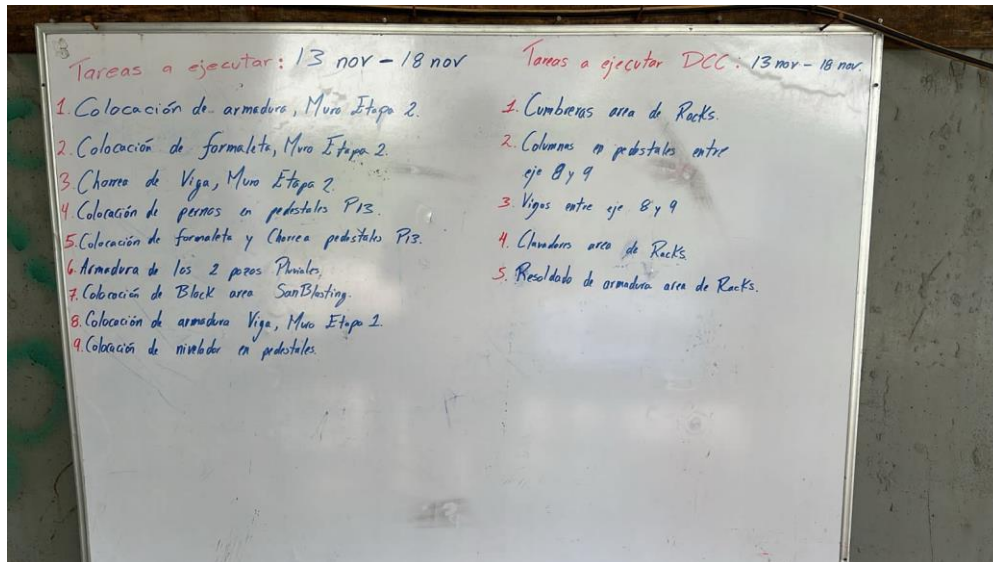 Tareas a ejecutar: 13 nov - 18 nov
1. Colocación de armadura, Muro Etapa 2.
2. Colocación de formaleta, Muro Etapa 2.
3. Chorrea de Viga, Muro Etapa 2.
4. Colocación de pernos en pedestales P13.
5. Colocación de formaleta y Chorrea pedestales P13.
6. Armadura de los 2 pozos Pluviales.
7. Colocación de Block area SanBlasting.
8. Colocación de armadura Viga, Muro Etapa 1.
9. Colocación de nivelador en pedestales.
Tareas a ejecutar DCC: 13 nov - 18 nov.
1. Cumbreras area de Racks.
2. Columnas en pedestales entre
eje 8 y 9
3. Vigas entre eje 8 y 9
4. Clavadores area de Racks.
5. Resoldado de armadura area de Racks.